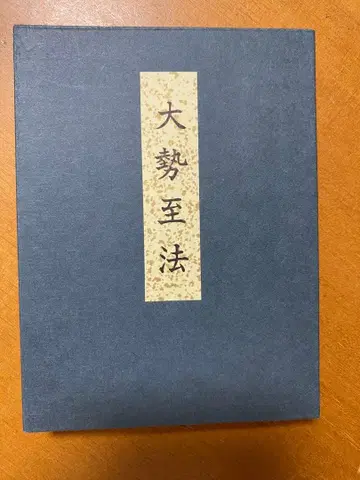 大勢至法